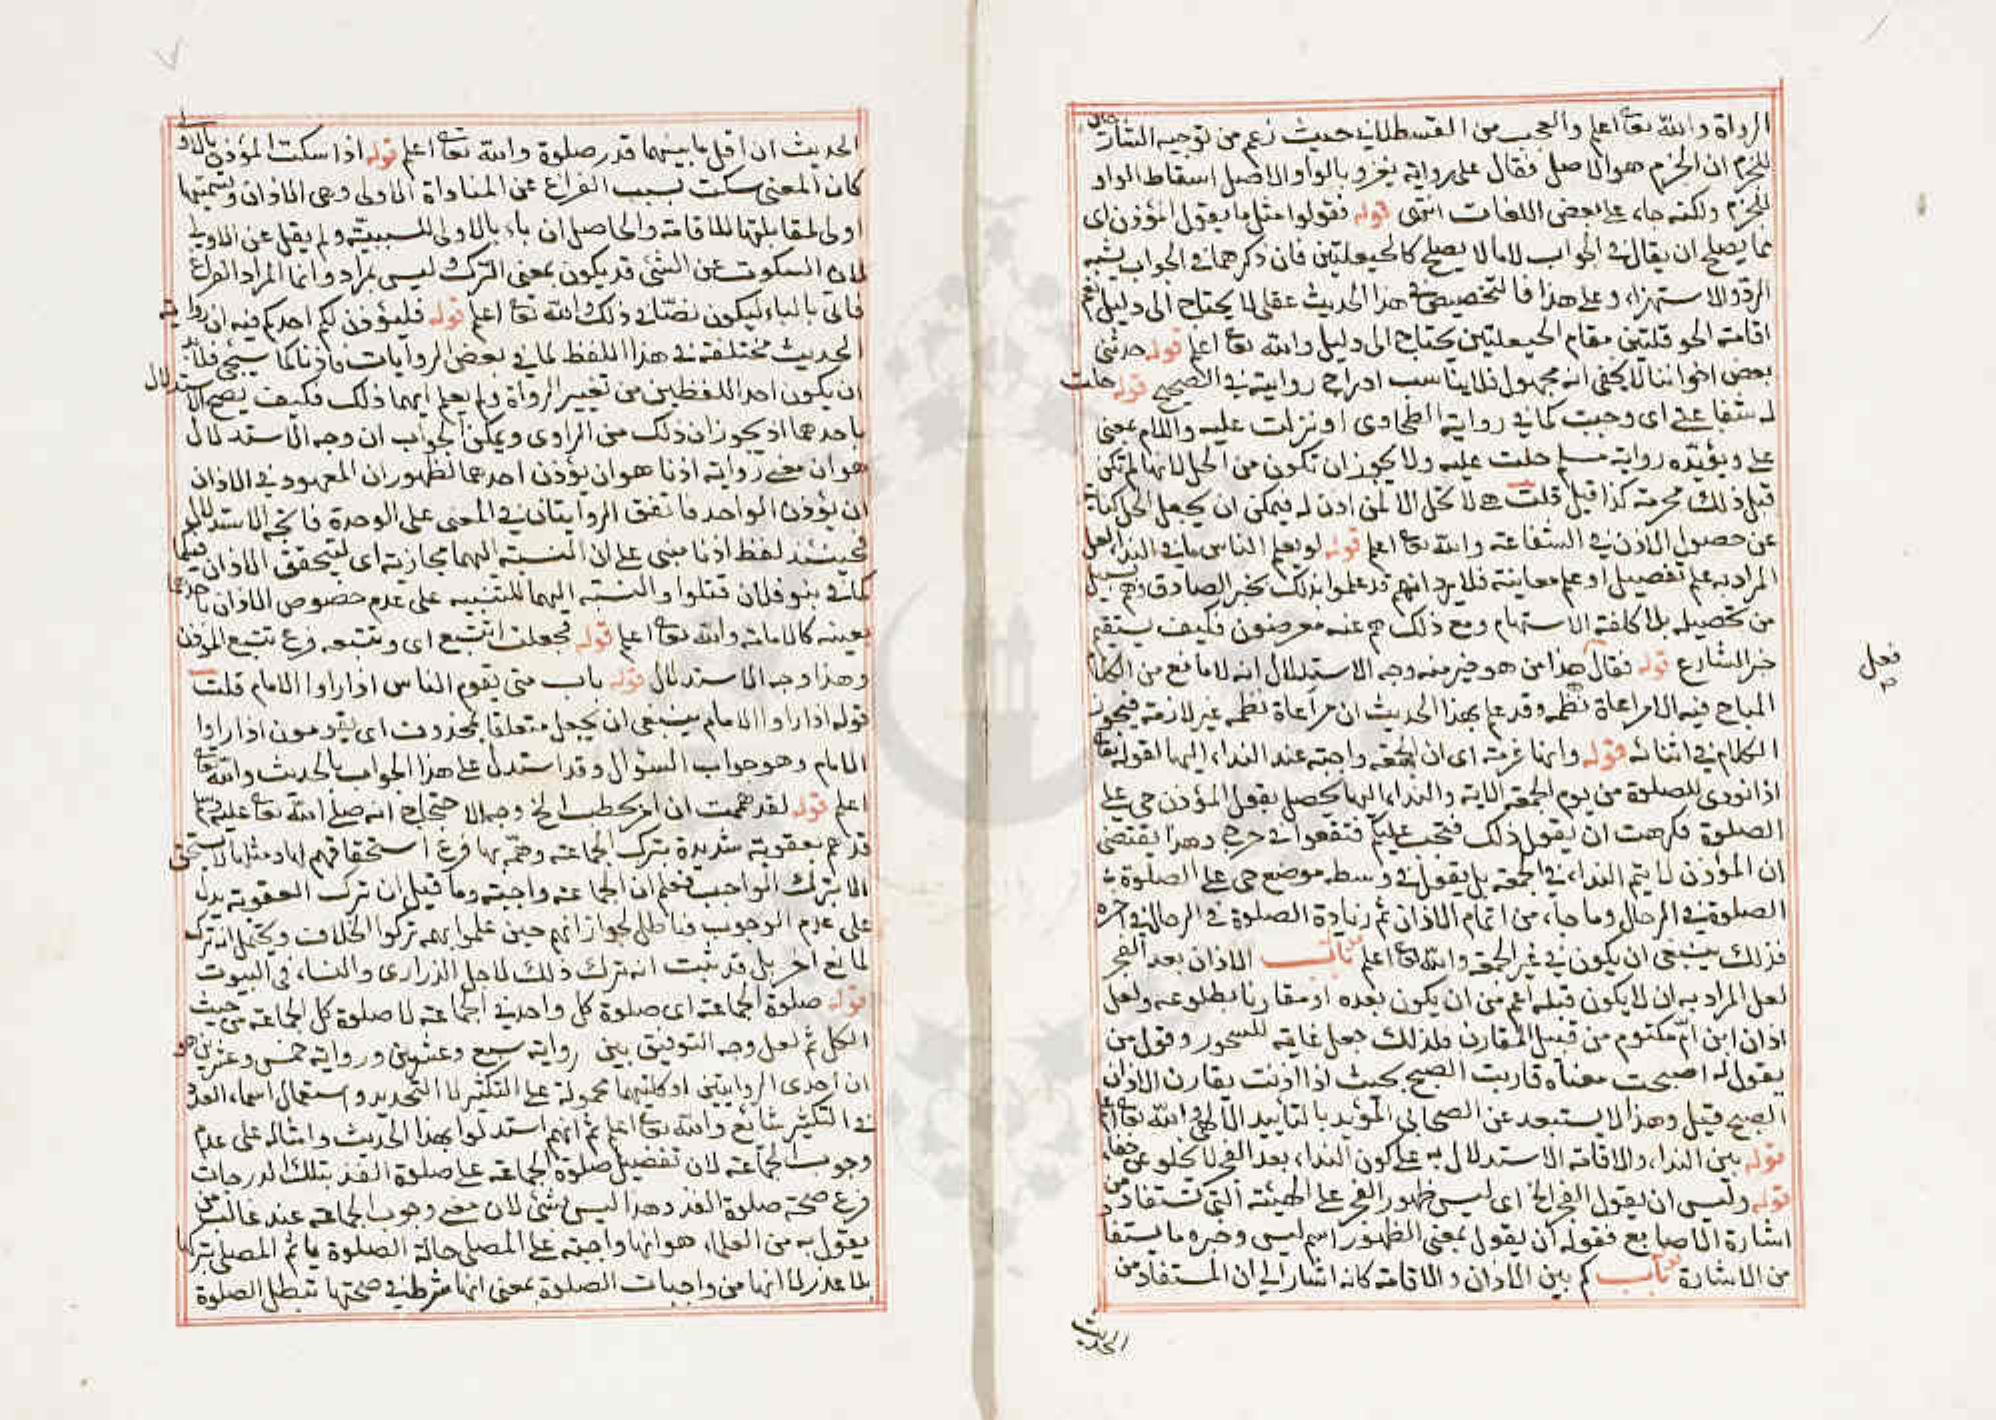 الرواة والله تعا اعلم والعجب من القسطلاني حيث زعم من توجيه
للجزم ان الجزم هو الاصل فقال على رواية يغزو بالواو الاصل اسقاط الواو
للجزم ولكنه جاء على بعض اللغات انتهى قوله فقولوا مثل ما يقول المؤذن اى
مما يصلح ان يقال في الجواب لا ما لا يصلح كالحيعلتين فان ذكرهما في الجواب يشبه
الرد والاستهزاء وعلى هذا فالتخصيص في هذا الحديث عقلى لا يحتاج الى دليل نعم
اقامة الحوقلتين مقام الحيعلتين يحتاج الى دليل والله تعا اعلم قوله حدثنى
بعض اخواننا لا يخفى انه مجهول فلا يناسب ادراج روايته في الصحيح قوله حلت
له شفاعتى اى وجبت كما في رواية الطحاوى او نزلت عليه واللام بمعنى
على ويؤيده رواية مسلم حلت عليه ولا يجوز ان تكون من الحل لانها لم تكن
قبل ذلك محرمة كذا قيل قلت هى لا تحل الا لمن اذن له فيمكن ان يجعل الحل كناية
عن حصول الاذن في الشفاعة والله تعا اعلم قوله لو يعلم الناس ما في النداء لعل
المراد به علم تفصيل او علم معاينة فلا يرد انهم قد علموا بذلك بخبر الصادق وهم
من تحصيله بلا كلفة الاستهام ومع ذلك هم عنه معرضون فكيف يستقيم
خبر الشارع قوله فقال هذا من هو خير منه وجه الاستدلال انه لا مانع من الكلام
فعل
المباح فيه الا مراعاة نظمه وقد علم بهذا الحديث ان مراعاة نظمه غير لازمة فيجوز
الكلام في اثنائه قوله وانها عزمة اى ان الجمعة واجبة عند النداء اليها لقوله تعا
اذا نودى للصلوة من يوم الجمعة الاية والنداء اليها يحصل بقول المؤذن حى على
الصلوة فكرهت ان يقول ذلك فتجب عليكم فتقعوا في حرج وهذا يقتضى
ان المؤذن لا يتم النداء في الجمعة بل يقول في وسطه موضع حى على الصلوة
الصلوة في الرحال وما جاء من اتمام الاذان ثم زيادة الصلوة في الرحال في اخره
فذلك ينبغى ان يكون في غير الجمعة والله تعا اعلم باب الاذان بعد الفجر
لعل المراد به ان لا يكون قبله اعم من ان يكون بعده او مقارنا بطلوعه ولعل
اذان ابن ام مكتوم من قبيل المقارن فلذلك جعل غاية للسحور وقول من
يقول له اصبحت معناه قاربت الصبح بحيث اذا اذنت يقارن الاذان
الصبح قيل وهذا لا يستبعد عن الصحابى المؤيد بالتأييد الالهى والله تعا اعلم
قوله بين النداء والاقامة الاستدلال به على كون النداء بعد الفجر لا يخلو عن خفاء
قوله وليس ان يقول الفجر الخ اى ليس ظهور الفجر على الهيئة التى تستفاد من
اشارة الاصابع فقوله ان يقول بمعنى الظهور اسم ليس وخبره ما يستفا
من الاشارة باب كم بين الاذان والاقامة كانه اشار الى ان المستفاد من
الحديث
الحديث ان اقل ما بينهما قدر صلوة والله تعا اعلم قوله اذا سكت المؤذن بالاولى
كان المعنى سكت بسبب الفراغ عن المناداة الاولى وهى الاذان وتسميتها
اولى لمقابلتها للاقامة والحاصل ان باء بالاولى للسببية ولم يقل عن الاولى
لان السكوت عن الشئ قد يكون بمعنى الترك ليس بمراد وانما المراد الفراغ
فاتى بالباء ليكون نصا في ذلك والله تعا اعلم قوله فليؤذن لكم احدكم فيه ان رواية
الحديث مختلفة في هذا اللفظ لما في بعض الروايات فاذنا كما سيجئ فلا بد
ان يكون احد اللفظين من تغيير الرواة ولم يعلم ايهما ذلك فكيف يصح الاستدلال
باحدهما اذ يجوز ان ذلك من الراوى ويمكن الجواب ان وجه الاستدلال
هو ان معنى رواية اذنا هو ان يؤذن احدهما لظهور ان المعهود في الاذان
ان يؤذن الواحد فاتفق الروايتان في المعنى على الوحدة فاتجه الاستدلال
فحينئذ لفظ اذنا مبنى على ان النسبة اليهما مجازية اى ليتحقق الاذان فيكما
كما في بنو فلان قتلوا والنسبة اليهما للتنبيه على عدم خصوص الاذان باحدهما
بعينه كالامامة والله تعا اعلم قوله فجعلت اتتبع اى وتتبعه فرع تتبع المؤذن
وهذا وجه الاستدلال قوله باب متى يقوم الناس اذا راوا الامام قلت
قوله اذا راوا الامام ينبغى ان يجعل متعلقا بمحذوف اى يقومون اذا راوا
الامام وهو جواب السؤال وقد استدل على هذا الجواب بالحديث والله تعا
اعلم قوله لقد هممت ان امر بحطب الخ وجه الاحتجاج انه صلى الله تعا عليه وسلم
قد هم بعقوبة شديدة بترك الجماعة وهمه بها فرع استحقاقهم لها ومثلها لا يستحق
الا بترك الواجب فعلم ان الجماعة واجبة وما قيل ان ترك العقوبة يدل
على عدم الوجوب فباطل لجواز انهم حين علموا بهمه تركوا الخلاف ويحتمل انه ترك
لمانع اخر بل قد ثبت انه ترك ذلك لاجل الذرارى والنساء في البيوت
قوله صلوة الجماعة اى صلوة كل واحد في الجماعة لا صلوة كل الجماعة من حيث
الكل ثم لعل وجه التوفيق بين رواية سبع وعشرين ورواية خمس وعشرين هو
ان احدى الروايتين او كلتيهما محمولة على التكثير لا التحديد واستعمال اسماء العدد
في التكثير شائع والله تعا اعلم ثم انهم استدلوا بهذا الحديث وامثاله على عدم
وجوب الجماعة لان تفضيل صلوة الجماعة على صلوة الفذ بتلك الدرجات
فرع صحة صلوة الفذ وهذا ليس بشئ لان معنى وجوب الجماعة عند غالب من
يقول به من العلماء هو انها واجبة على المصلى حالة الصلوة ياثم المصلى بتركها
بلا عذر لا انها من واجبات الصلوة بمعنى انها شرط في صحتها تبطل الصلوة